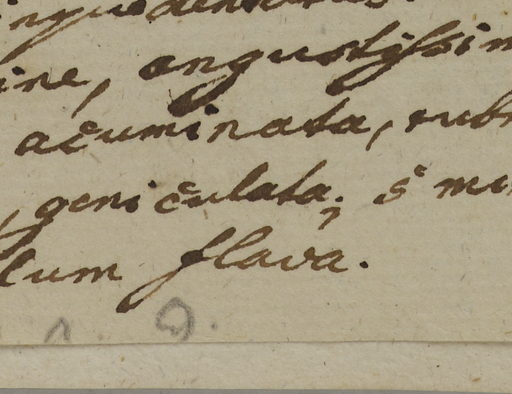 ine, angustissim
acuminata, rub
, geniculata; s mi
lum flava.